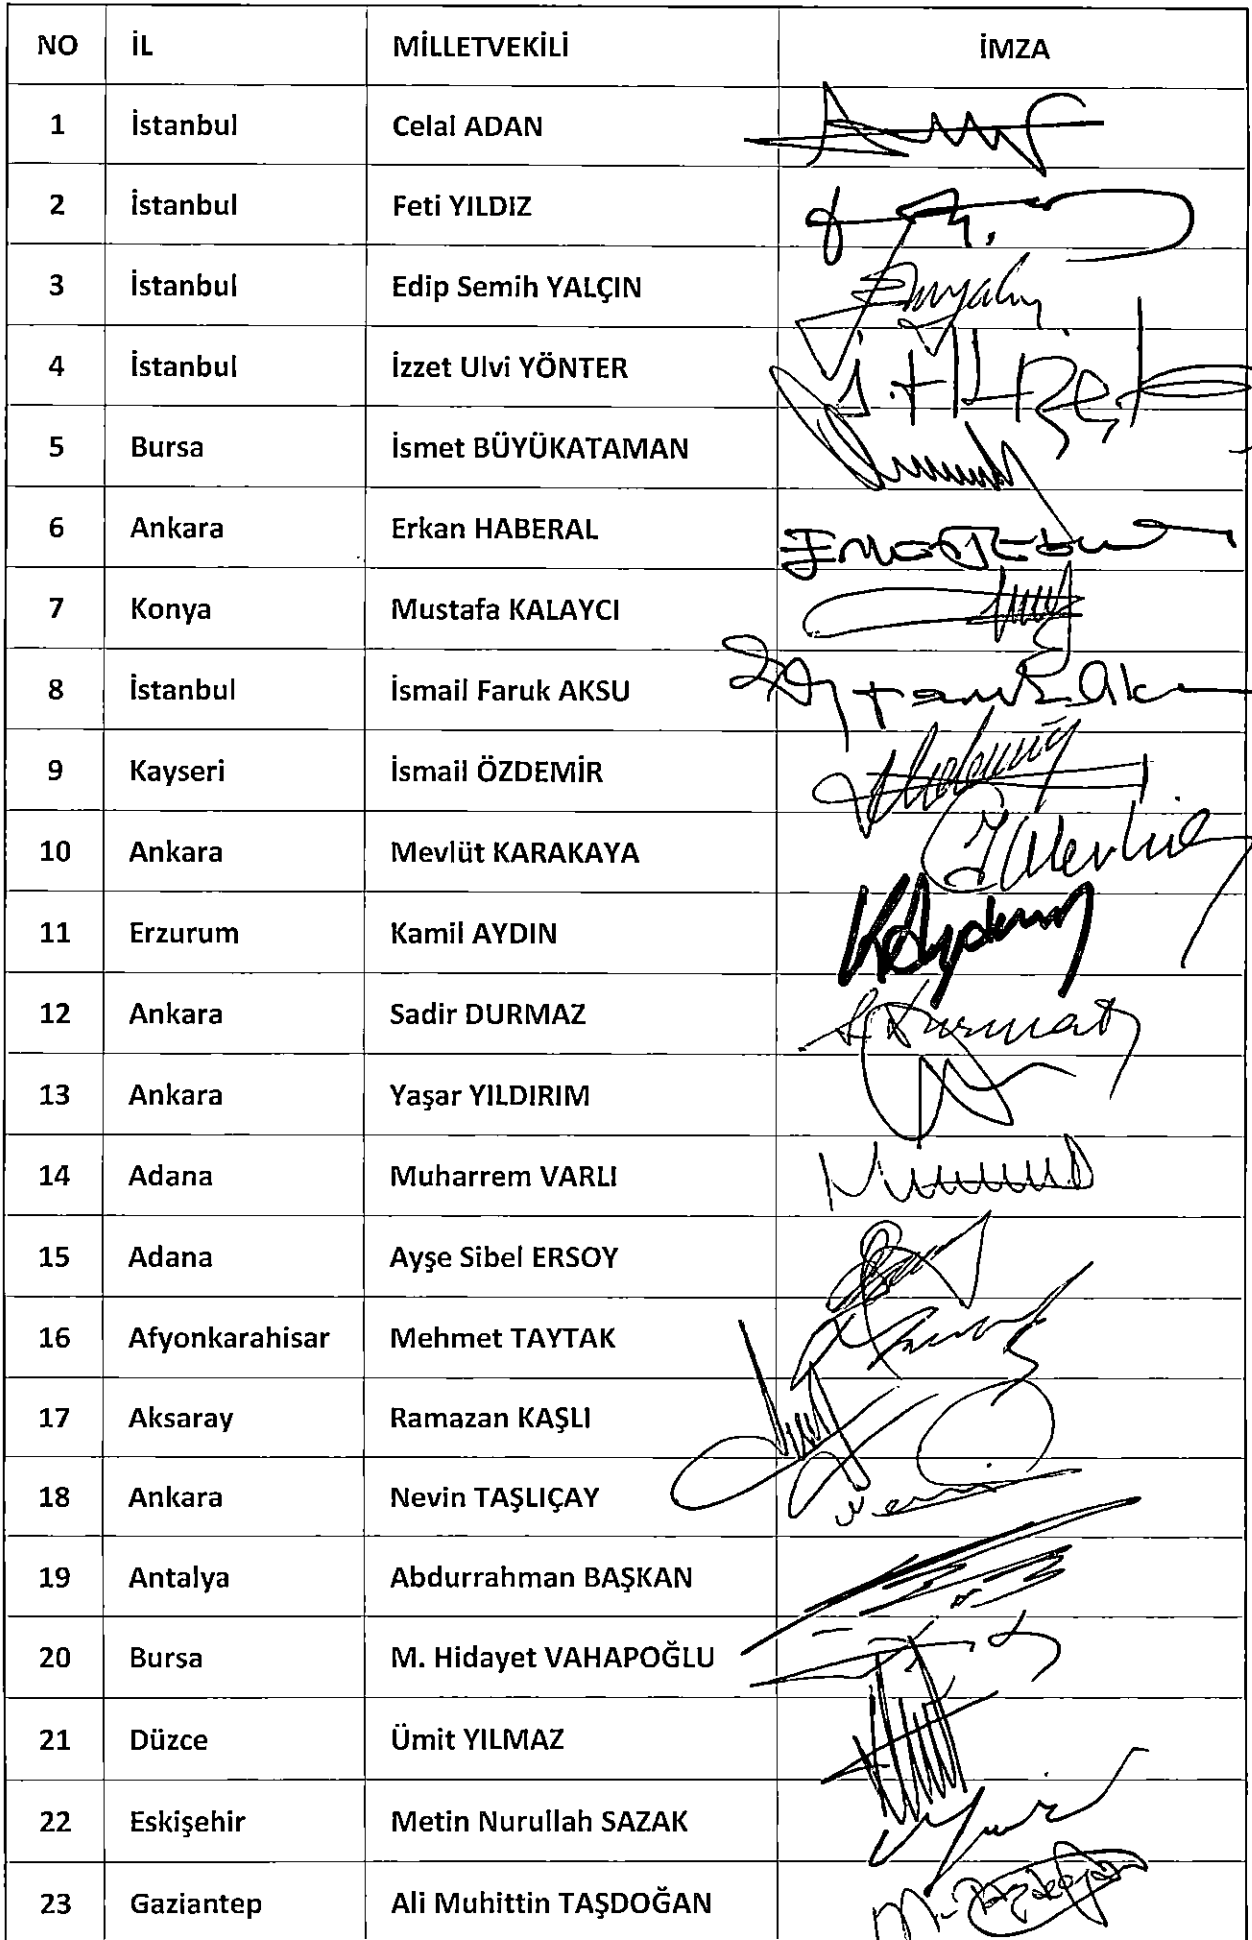 NO İL MİLLETVEKİLİ İMZA
1 İstanbul Celal ADAN
2 İstanbul Feti YILDIZ
3 İstanbul Edip Semih YALÇIN
4 İstanbul İzzet Ulvi YÖNTER
5 Bursa İsmet BÜYÜKATAMAN
6 Ankara Erkan HABERAL
7 Konya Mustafa KALAYCI
8 İstanbul İsmail Faruk AKSU
9 Kayseri İsmail ÖZDEMİR
10 Ankara Mevlüt KARAKAYA
11 Erzurum Kamil AYDIN
12 Ankara Sadir DURMAZ
13 Ankara Yaşar YILDIRIM
14 Adana Muharrem VARLI
15 Adana Ayşe Sibel ERSOY
16 Afyonkarahisar Mehmet TAYTAK
17 Aksaray Ramazan KAŞLI
18 Ankara Nevin TAŞLIÇAY
19 Antalya Abdurrahman BAŞKAN
20 Bursa M. Hidayet VAHAPOĞLU
21 Düzce Ümit YILMAZ
22 Eskişehir Metin Nurullah SAZAK
23 Gaziantep Ali Muhittin TAŞDOĞAN